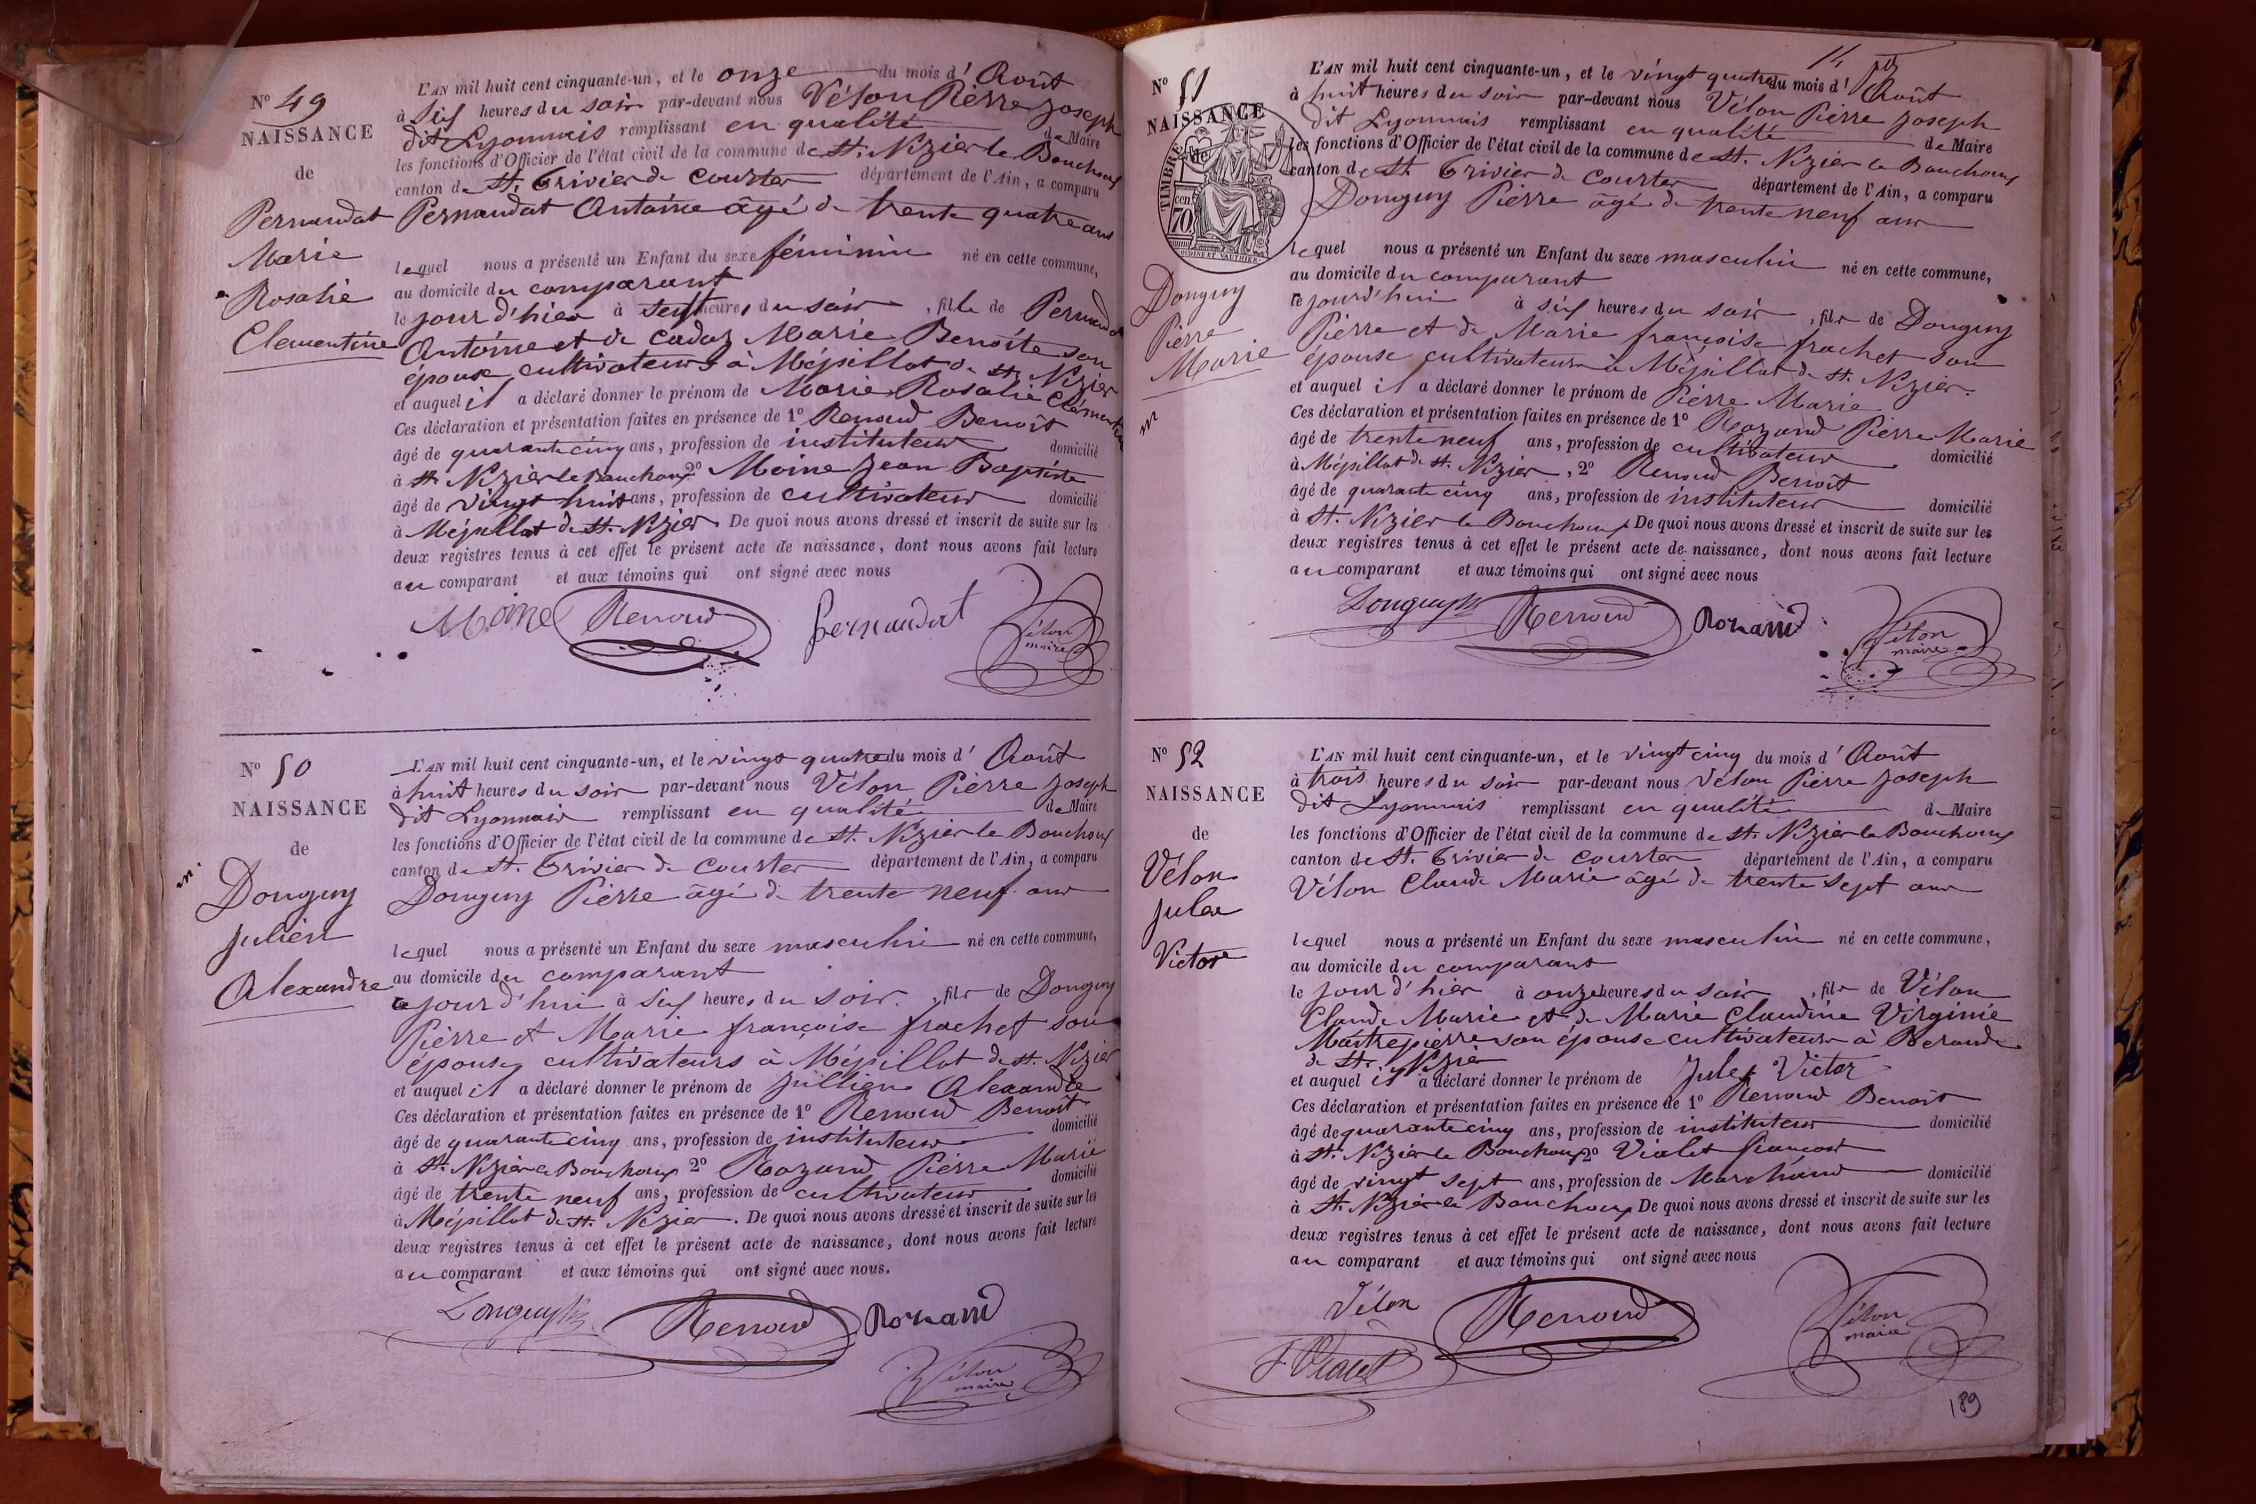 N° 49
NAISSANCE
de
Pernaudat
Marie
Rosalie
Clementine
L'AN mil huit cent cinquante-un, et le onze du mois d'Août
à six heures du soir par-devant nous Vélon Pierre Joseph
dit Lyonnais remplissant en qualité de Maire
les fonctions d'Officier de l'état civil de la commune de St. Nizier le Bouchoux
canton de St. Trivier de Courtes département de l'Ain, a comparu
Pernaudat Antoine âgé de trente quatre ans
lequel nous a présenté un Enfant du sexe féminin né en cette commune,
au domicile du comparant
le jour d'hier à sept heures du soir, fille de Pernaudat
Antoine et de Cadoz Marie Benoîte son
épouse, cultivateurs à Mépillat de St. Nizier
et auquel il a déclaré donner le prénom de Marie Rosalie Clémentine
Ces déclaration et présentation faites en présence de 1° Renoud Benoît
âgé de quarante cinq ans, profession de instituteur domicilié
à St. Nizier le Bouchoux 2° Moine Jean Baptiste
âgé de vingt huit ans, profession de cultivateur domicilié
à Mépillat de St. Nizier. De quoi nous avons dressé et inscrit de suite sur les
deux registres tenus à cet effet le présent acte de naissance, dont nous avons fait lecture
au comparant et aux témoins qui ont signé avec nous
Moine Renoud Pernaudat Vélon
maire
N° 50
NAISSANCE
de
Donguy
Julien
Alexandre
L'AN mil huit cent cinquante-un, et le vingt quatre du mois d'Août
à huit heures du soir par-devant nous Vélon Pierre Joseph
dit Lyonnais remplissant en qualité de Maire
les fonctions d'Officier de l'état civil de la commune de St. Nizier le Bouchoux
canton de St. Trivier de Courtes département de l'Ain, a comparu
Donguy Pierre âgé de trente neuf ans
lequel nous a présenté un Enfant du sexe masculin né en cette commune,
au domicile du comparant
ce jour d'hui à six heures du soir, fils de Donguy
Pierre et Marie françoise frachet son
épouse, cultivateurs à Mépillat de St. Nizier
et auquel il a déclaré donner le prénom de Jullien Alexandre
Ces déclaration et présentation faites en présence de 1° Renoud Benoît
âgé de quarante cinq ans, profession de instituteur domicilié
à St. Nizier le Bouchoux 2° Rozand Pierre Marie
âgé de trente neuf ans, profession de cultivateur domicilié
à Mépillat de St. Nizier. De quoi nous avons dressé et inscrit de suite sur les
deux registres tenus à cet effet le présent acte de naissance, dont nous avons fait lecture
au comparant et aux témoins qui ont signé avec nous.
Donguy Renoud Rozand
Vélon
maire
14
N° 51
NAISSANCE
de
TIMBRE
cen.
70
OUDINÉ ET VAUTHIER
Donguy
Pierre
Marie
L'AN mil huit cent cinquante-un, et le vingt quatre du mois d'Août
à huit heures du soir par-devant nous Vélon Pierre Joseph
dit Lyonnais remplissant en qualité de Maire
les fonctions d'Officier de l'état civil de la commune de St. Nizier le Bouchoux
canton de St. Trivier de Courtes département de l'Ain, a comparu
Donguy Pierre âgé de trente neuf ans
lequel nous a présenté un Enfant du sexe masculin né en cette commune,
au domicile du comparant
ce jourd'hui à six heures du soir, fils de Donguy
Pierre et de Marie françoise frachet son
épouse cultivateurs à Mépillat de St. Nizier.
et auquel il a déclaré donner le prénom de Pierre Marie
Ces déclaration et présentation faites en présence de 1° Rozand Pierre Marie
âgé de trente neuf ans, profession de cultivateur domicilié
à Mépillat de St. Nizier, 2° Renoud Benoît
âgé de quarante cinq ans, profession de instituteur domicilié
à St. Nizier le Bouchoux De quoi nous avons dressé et inscrit de suite sur les
deux registres tenus à cet effet le présent acte de naissance, dont nous avons fait lecture
au comparant et aux témoins qui ont signé avec nous
Donguy Renoud Rozand Vélon
maire
N° 52
NAISSANCE
de
Vélon
Jules
Victor
L'AN mil huit cent cinquante-un, et le vingt cinq du mois d'Août
à trois heures du soir par-devant nous Vélon Pierre Joseph
dit Lyonnais remplissant en qualité de Maire
les fonctions d'Officier de l'état civil de la commune de St. Nizier le Bouchoux
canton de St. Trivier de Courtes département de l'Ain, a comparu
Vélon Claude Marie âgé de trente sept ans
lequel nous a présenté un Enfant du sexe masculin né en cette commune,
au domicile du comparant
le jour d'hier à onze heures du soir, fils de Vélon
Claude Marie et de Marie Claudine Virginie
Maitrepierre son épouse cultivateurs à
de St. Nizier
et auquel il a déclaré donner le prénom de Jules Victor
Ces déclaration et présentation faites en présence de 1° Renoud Benoît
âgé de quarante cinq ans, profession de instituteur domicilié
à St. Nizier le Bouchoux 2° Violet françois
âgé de vingt sept ans, profession de Marchand domicilié
à St. Nizier le Bouchoux De quoi nous avons dressé et inscrit de suite sur les
deux registres tenus à cet effet le présent acte de naissance, dont nous avons fait lecture
au comparant et aux témoins qui ont signé avec nous
Vélon Renoud Vélon
maire
189